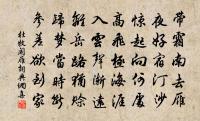 帶霜南去雁
夜好宿汀沙
驚起向何處
高飛極海涯
入雲聲漸遠
離岳路猶賒
歸夢當時斷
參差欲到家
杜牧聞雁